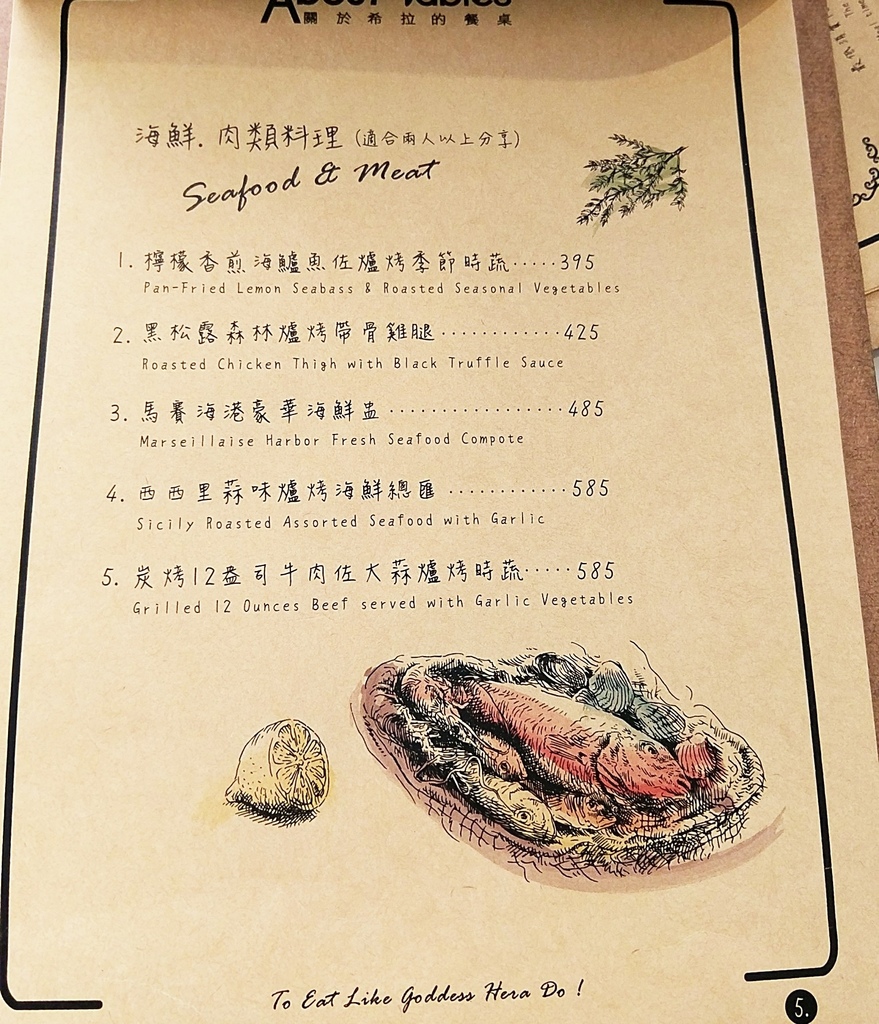 About Tables
關於希拉的餐桌
海鮮.肉類料理(適合兩人以上分享)
Seafood & Meat
1. 檸檬香煎海鱸魚佐爐烤季節時蔬·····395
Pan-Fried Lemon Seabass & Roasted Seasonal Vegetables
2. 黑松露森林爐烤帶骨雞腿············425
Roasted Chicken Thigh with Black Truffle Sauce
3. 馬賽海港豪華海鮮盅·················485
Marseillaise Harbor Fresh Seafood Compote
4. 西西里蒜味爐烤海鮮總匯············585
Sicily Roasted Assorted Seafood with Garlic
5. 炭烤12盎司牛肉佐大蒜爐烤時蔬·····585
Grilled 12 Ounces Beef served with Garlic Vegetables
To Eat Like Goddess Hera Do !
5.